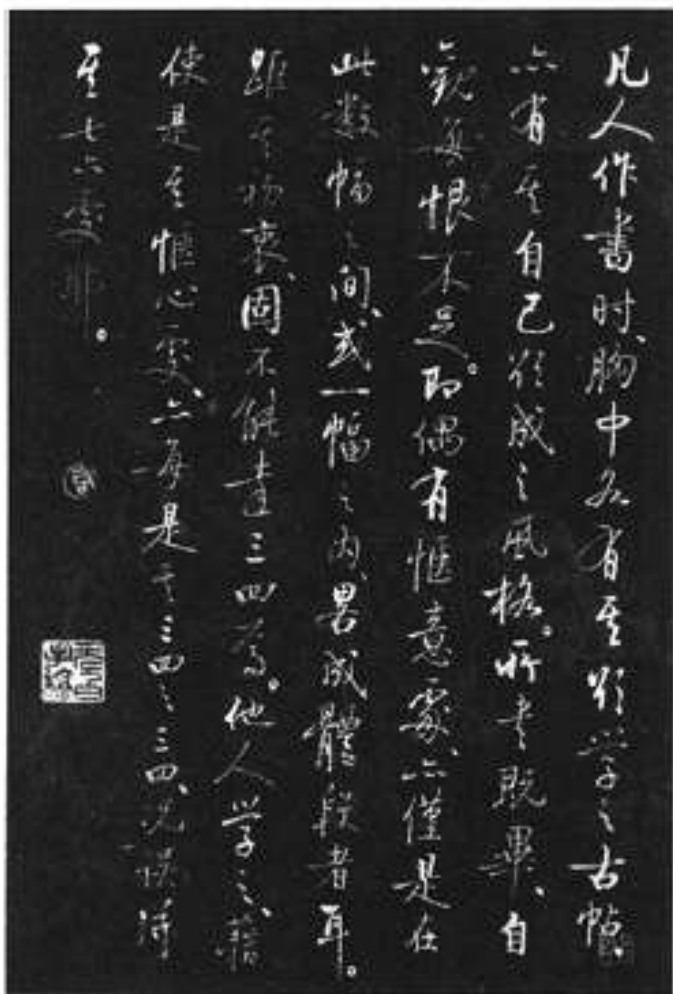 凡人作書时、胸中各有其欲学之古帖、
亦有其自己欲成之風格。所书既畢、自
觀每恨不足。即偶有惬意處、亦僅是在
此数幅之间、或一幅之内、畧成體段者耳。
距其初衷、固不能達三四焉。他人学之、藉
使是其惬心處、亦每是其三四之三四、况误得
其七六處耶。